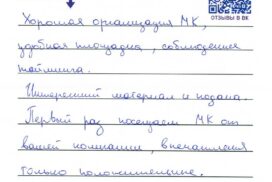 ОТЗЫВЫ В ВК
Хорошая организация МК,
удобная площадка, соблюдение
тайминга.
Интересный материал и подача.
Первый раз посещаем МК от
вашей компании, впечатления
только положительные.